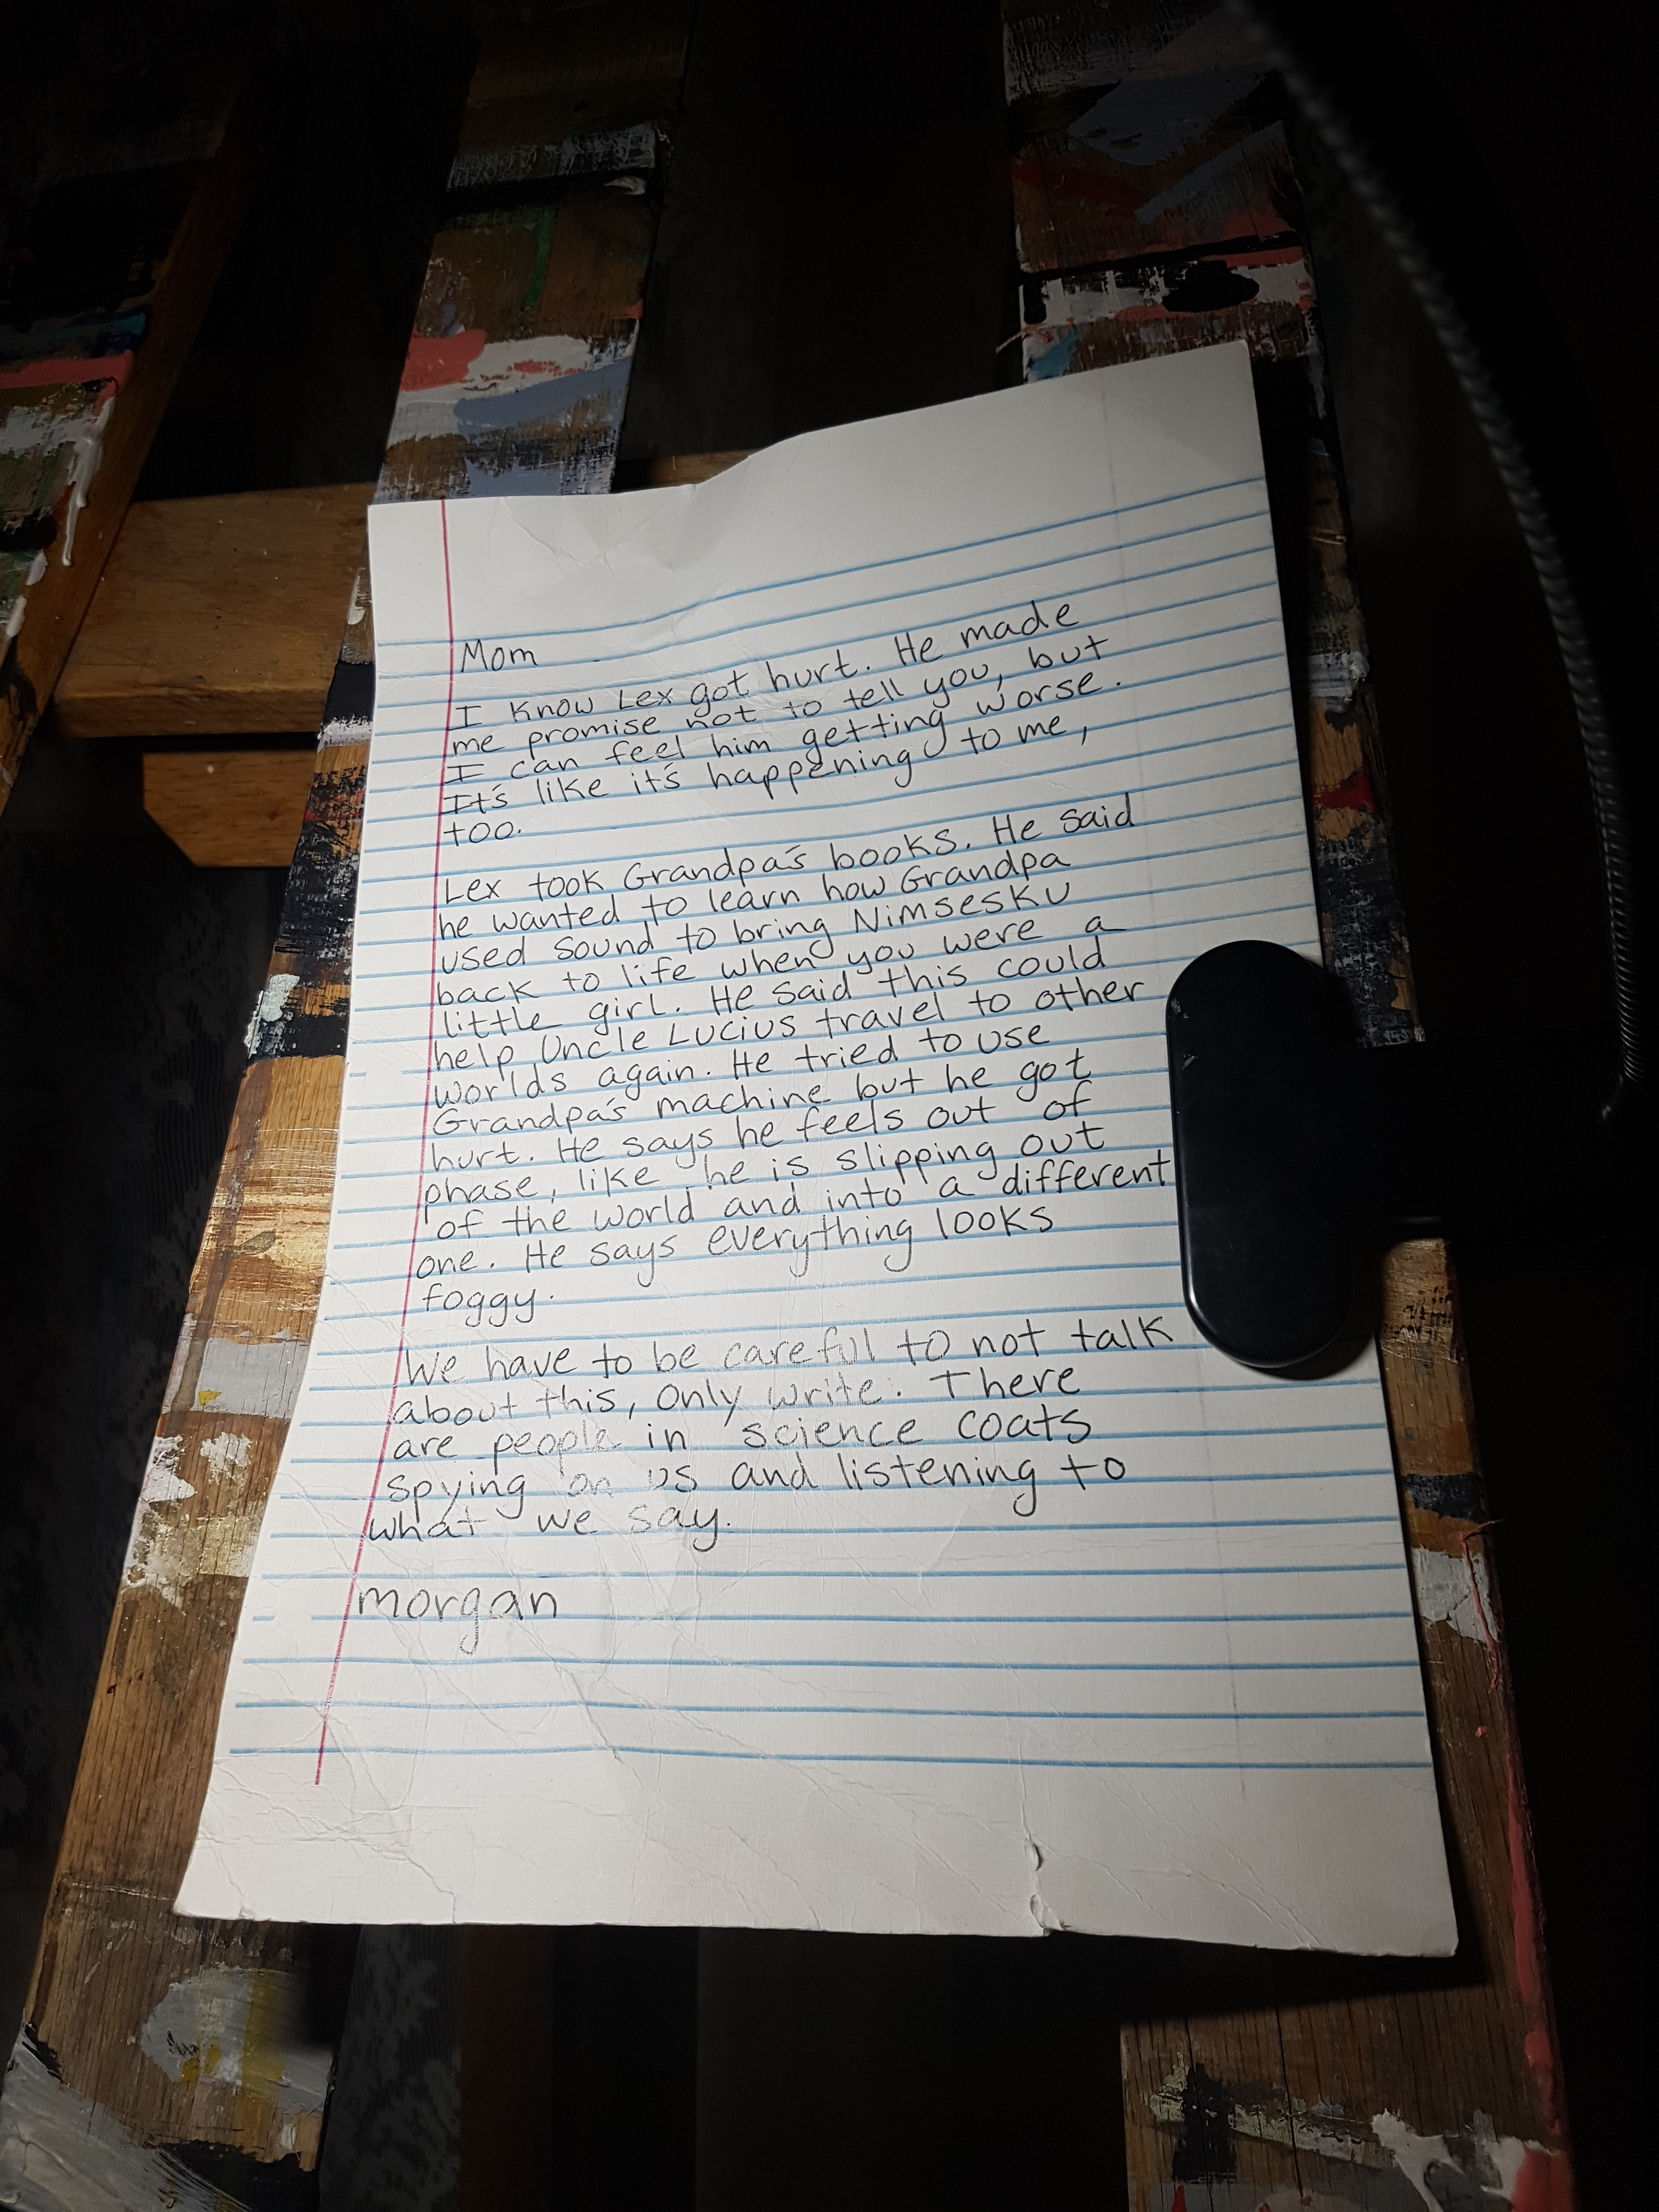 Mom
I know Lex got hurt. He made
me promise not to tell you, but
I can feel him getting worse.
It's like it's happening to me,
too.
Lex took Grandpa's books. He said
he wanted to learn how Grandpa
used sound to bring Nimsesku
back to life when you were a
little girl. He said this could
help Uncle Lucius travel to other
worlds again. He tried to use
Grandpa's machine but he got
hurt. He says he feels out of
phase, like he is slipping out
of the world and into a different
one. He says everything looks
foggy.
We have to be careful to not talk
about this, only write. There
are people in science coats
spying on us and listening to
what we say.
morgan